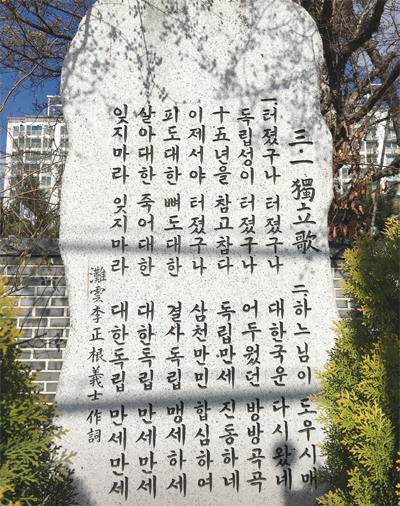 三·一 獨立歌
一.터졌구나 터졌구나
독립성이 터졌구나
十五년을 참고참다
이제서야 터졌구나
피도대한 뼈도대한
살아대한 죽어대한
잊지마라 잊지마라
二.하느님이 도우시매
대한국운 다시왔네
어두웠던 방방곡곡
독립만세 진동하네
삼천만민 합심하여
결사독립 맹세하세
대한독립 만세만세
대한독립 만세만세
灘雲李正根義士作詞